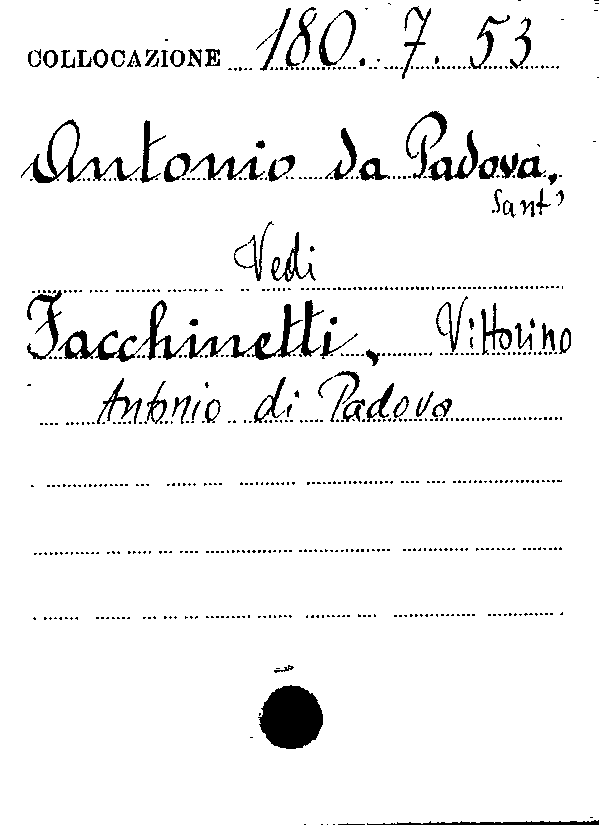 COLLOCAZIONE 180. 7. 53
Antonio da Padova,
Sant'
Vedi
Facchinetti, Vittorino
Antonio di Padova